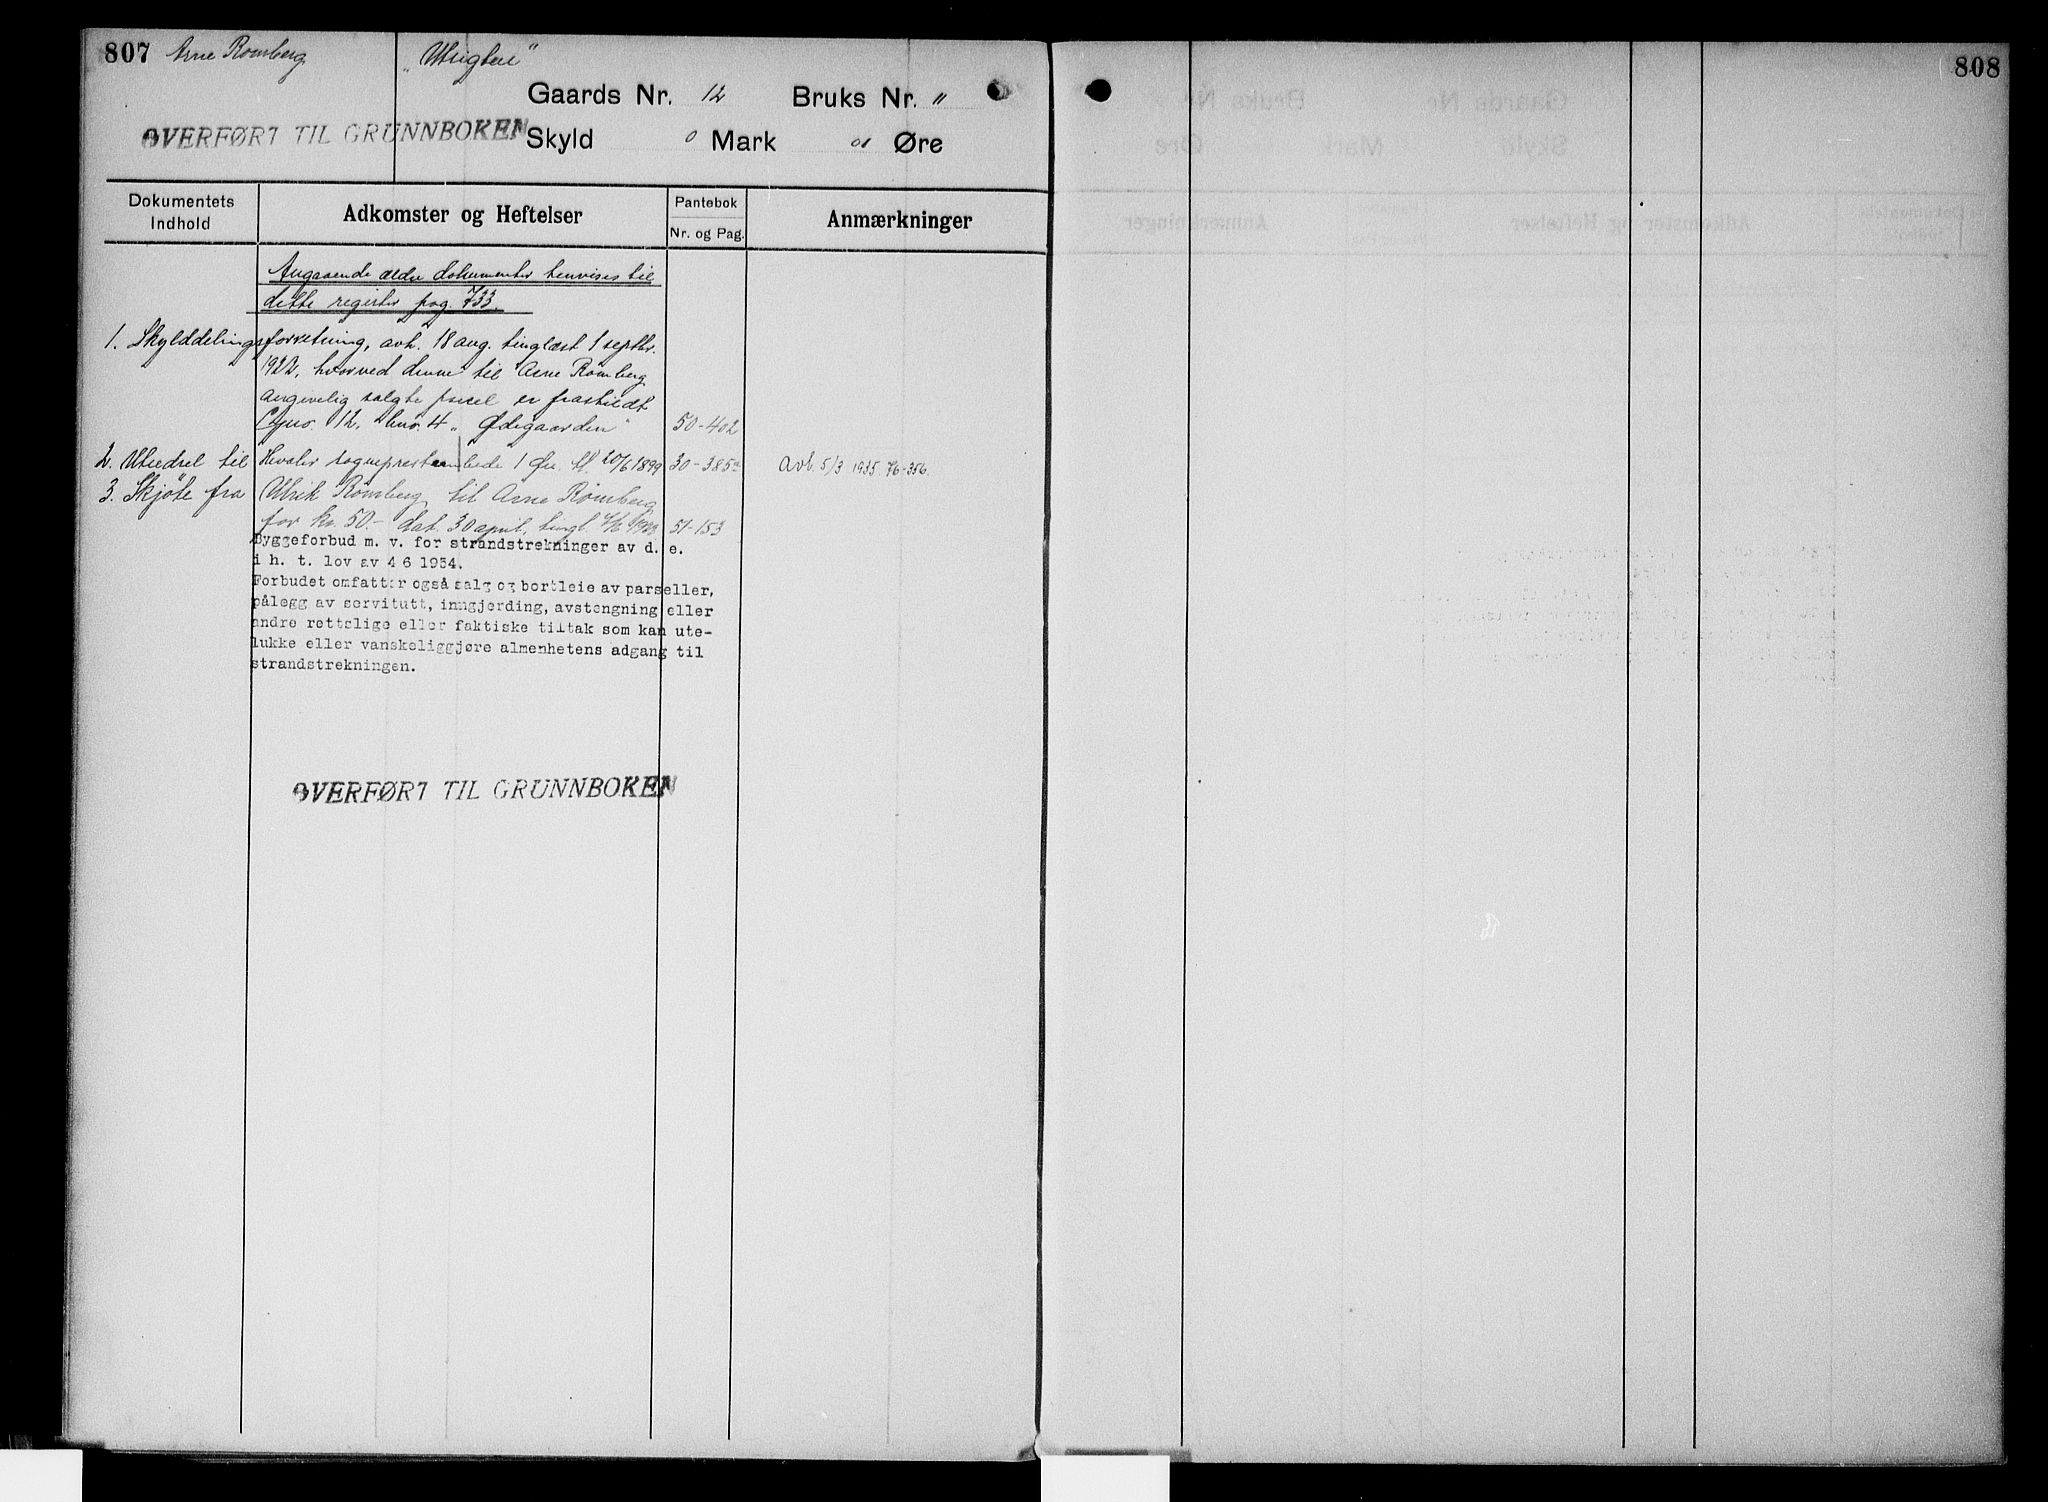 807 Arne Romberg
„Utsigten“
Gaards Nr. 12 Bruks Nr. "
OVERFØRT TIL GRUNNBOKEN
Skyld 0 Mark 01 Øre
808
Dokumentets Indhold
Adkomster og Heftelser
Pantebok
Nr. og Pag.
Anmærkninger
Angaaende ældre dokumenter henvises til
dette register pag. 733.
1. Skylddelingsforretning, avh. 18 aug. tinglæst 1 septbr.
1922, hvorved denne til Arne Romberg
angivelig solgte parcel er fraskildt
Gnr. 12, bnr. 4 „Ødegaarden“ 50-402
2. Utsedsel til Hvaler sogneprestembede 1 Øre tl. 20/6 1899 30-385a Avl. 5/3 1935. 76-356.
3. Skjøte fra Ulrik Romberg til Arne Romberg
for kr. 50.- dat. 30 april, tingl. 51-153
Byggeforbud m. v. for strandstrekninger av d. e.
i h. t. lov av 4 6 1954.
Forbudet omfatter også salg og bortleie av parseller,
pålegg av servitutt, inngjerding, avstengning eller
andre rettslige eller faktiske tiltak som kan ute-
lukke eller vanskeliggjøre almenhetens adgang til
strandstrekningen.
OVERFØRT TIL GRUNNBOKEN